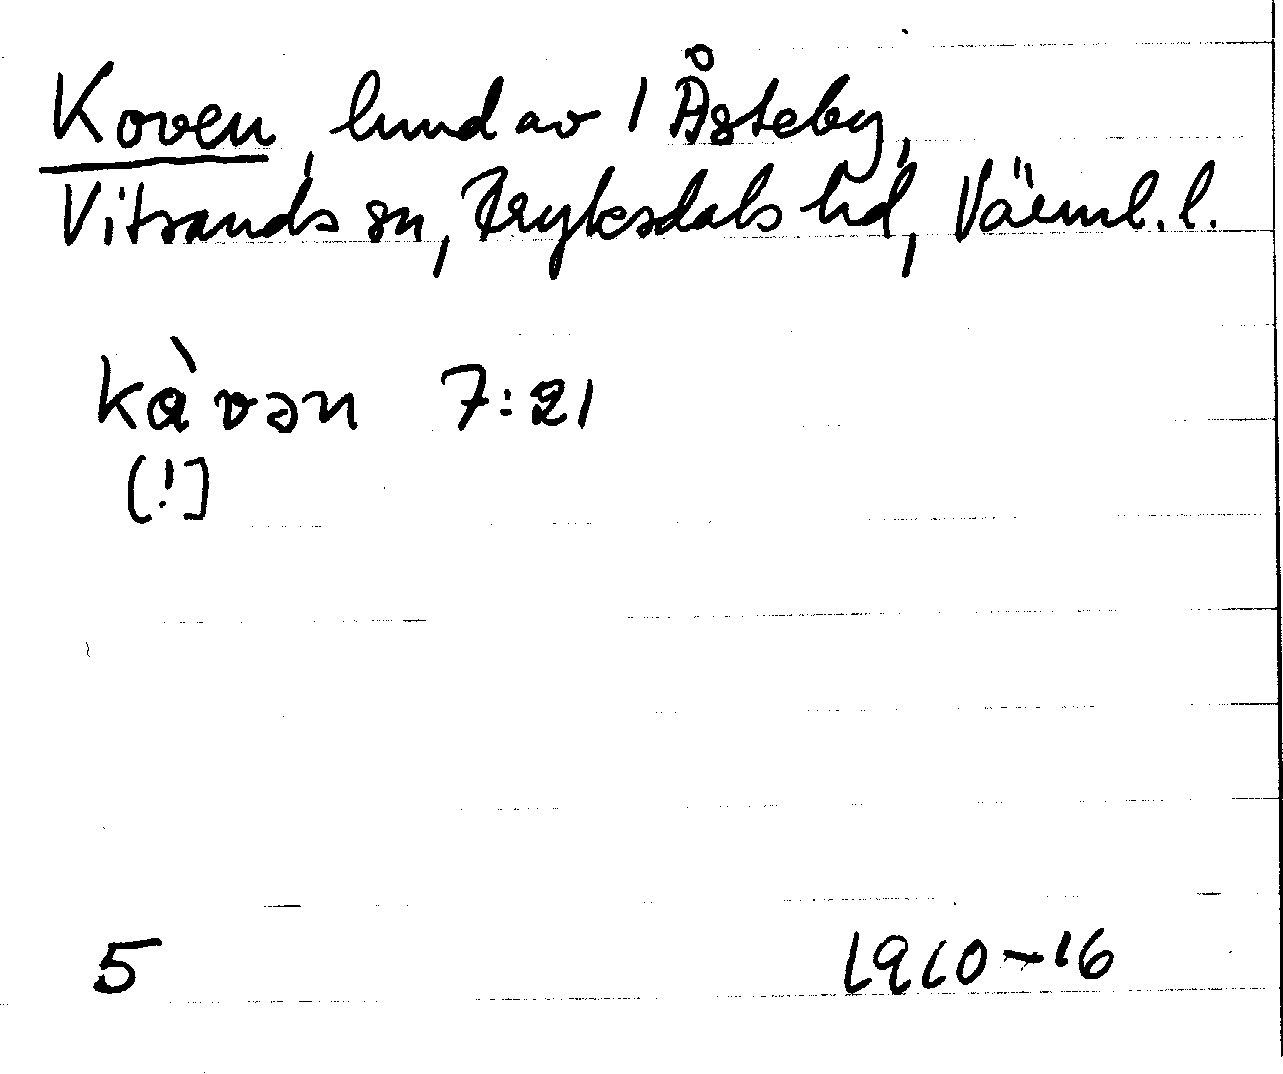 Koven, lund av 1 Åsteby,
Vitsands sn, Fryksdals hd, Värml. l.
kàvən 7:21
(!]
5 1910-16